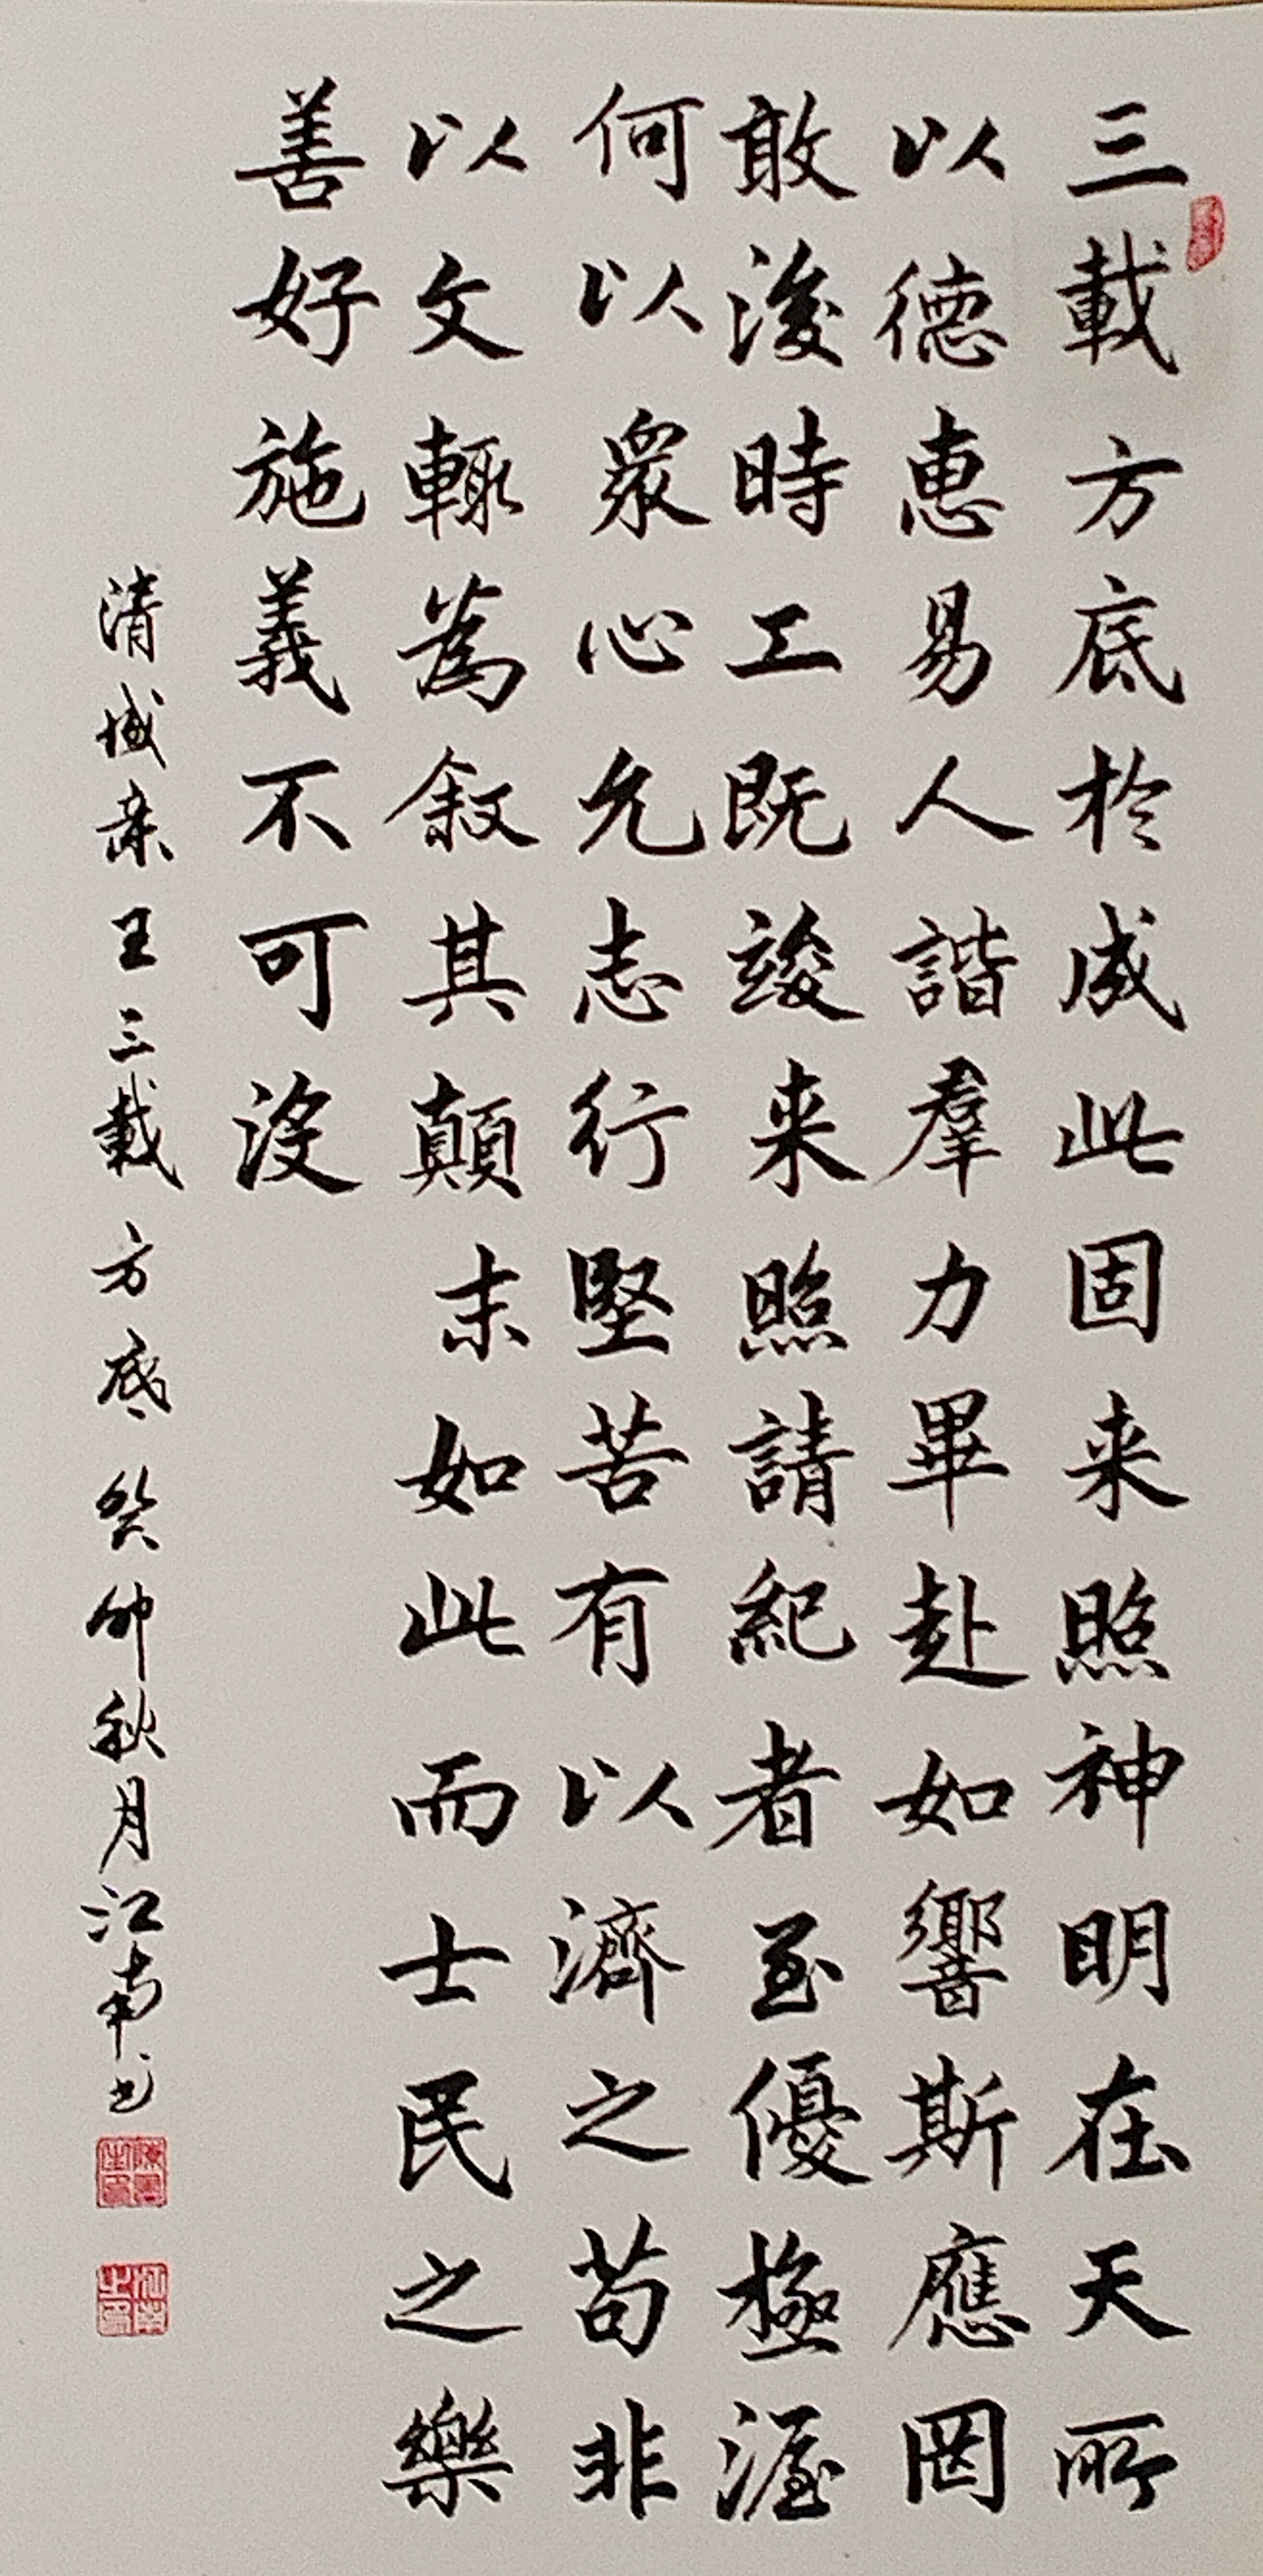 三載方底於成此固来照神明在天所
以德惠易人諧羣力畢赴如響斯應罔
敢後時工既竣来照請紀者至優極渥
何以眾心允志行堅苦有以濟之苟非
以文輙為敘其顛末如此而士民之樂
善好施義不可没
清成亲王三載方底癸卯秋月江南书